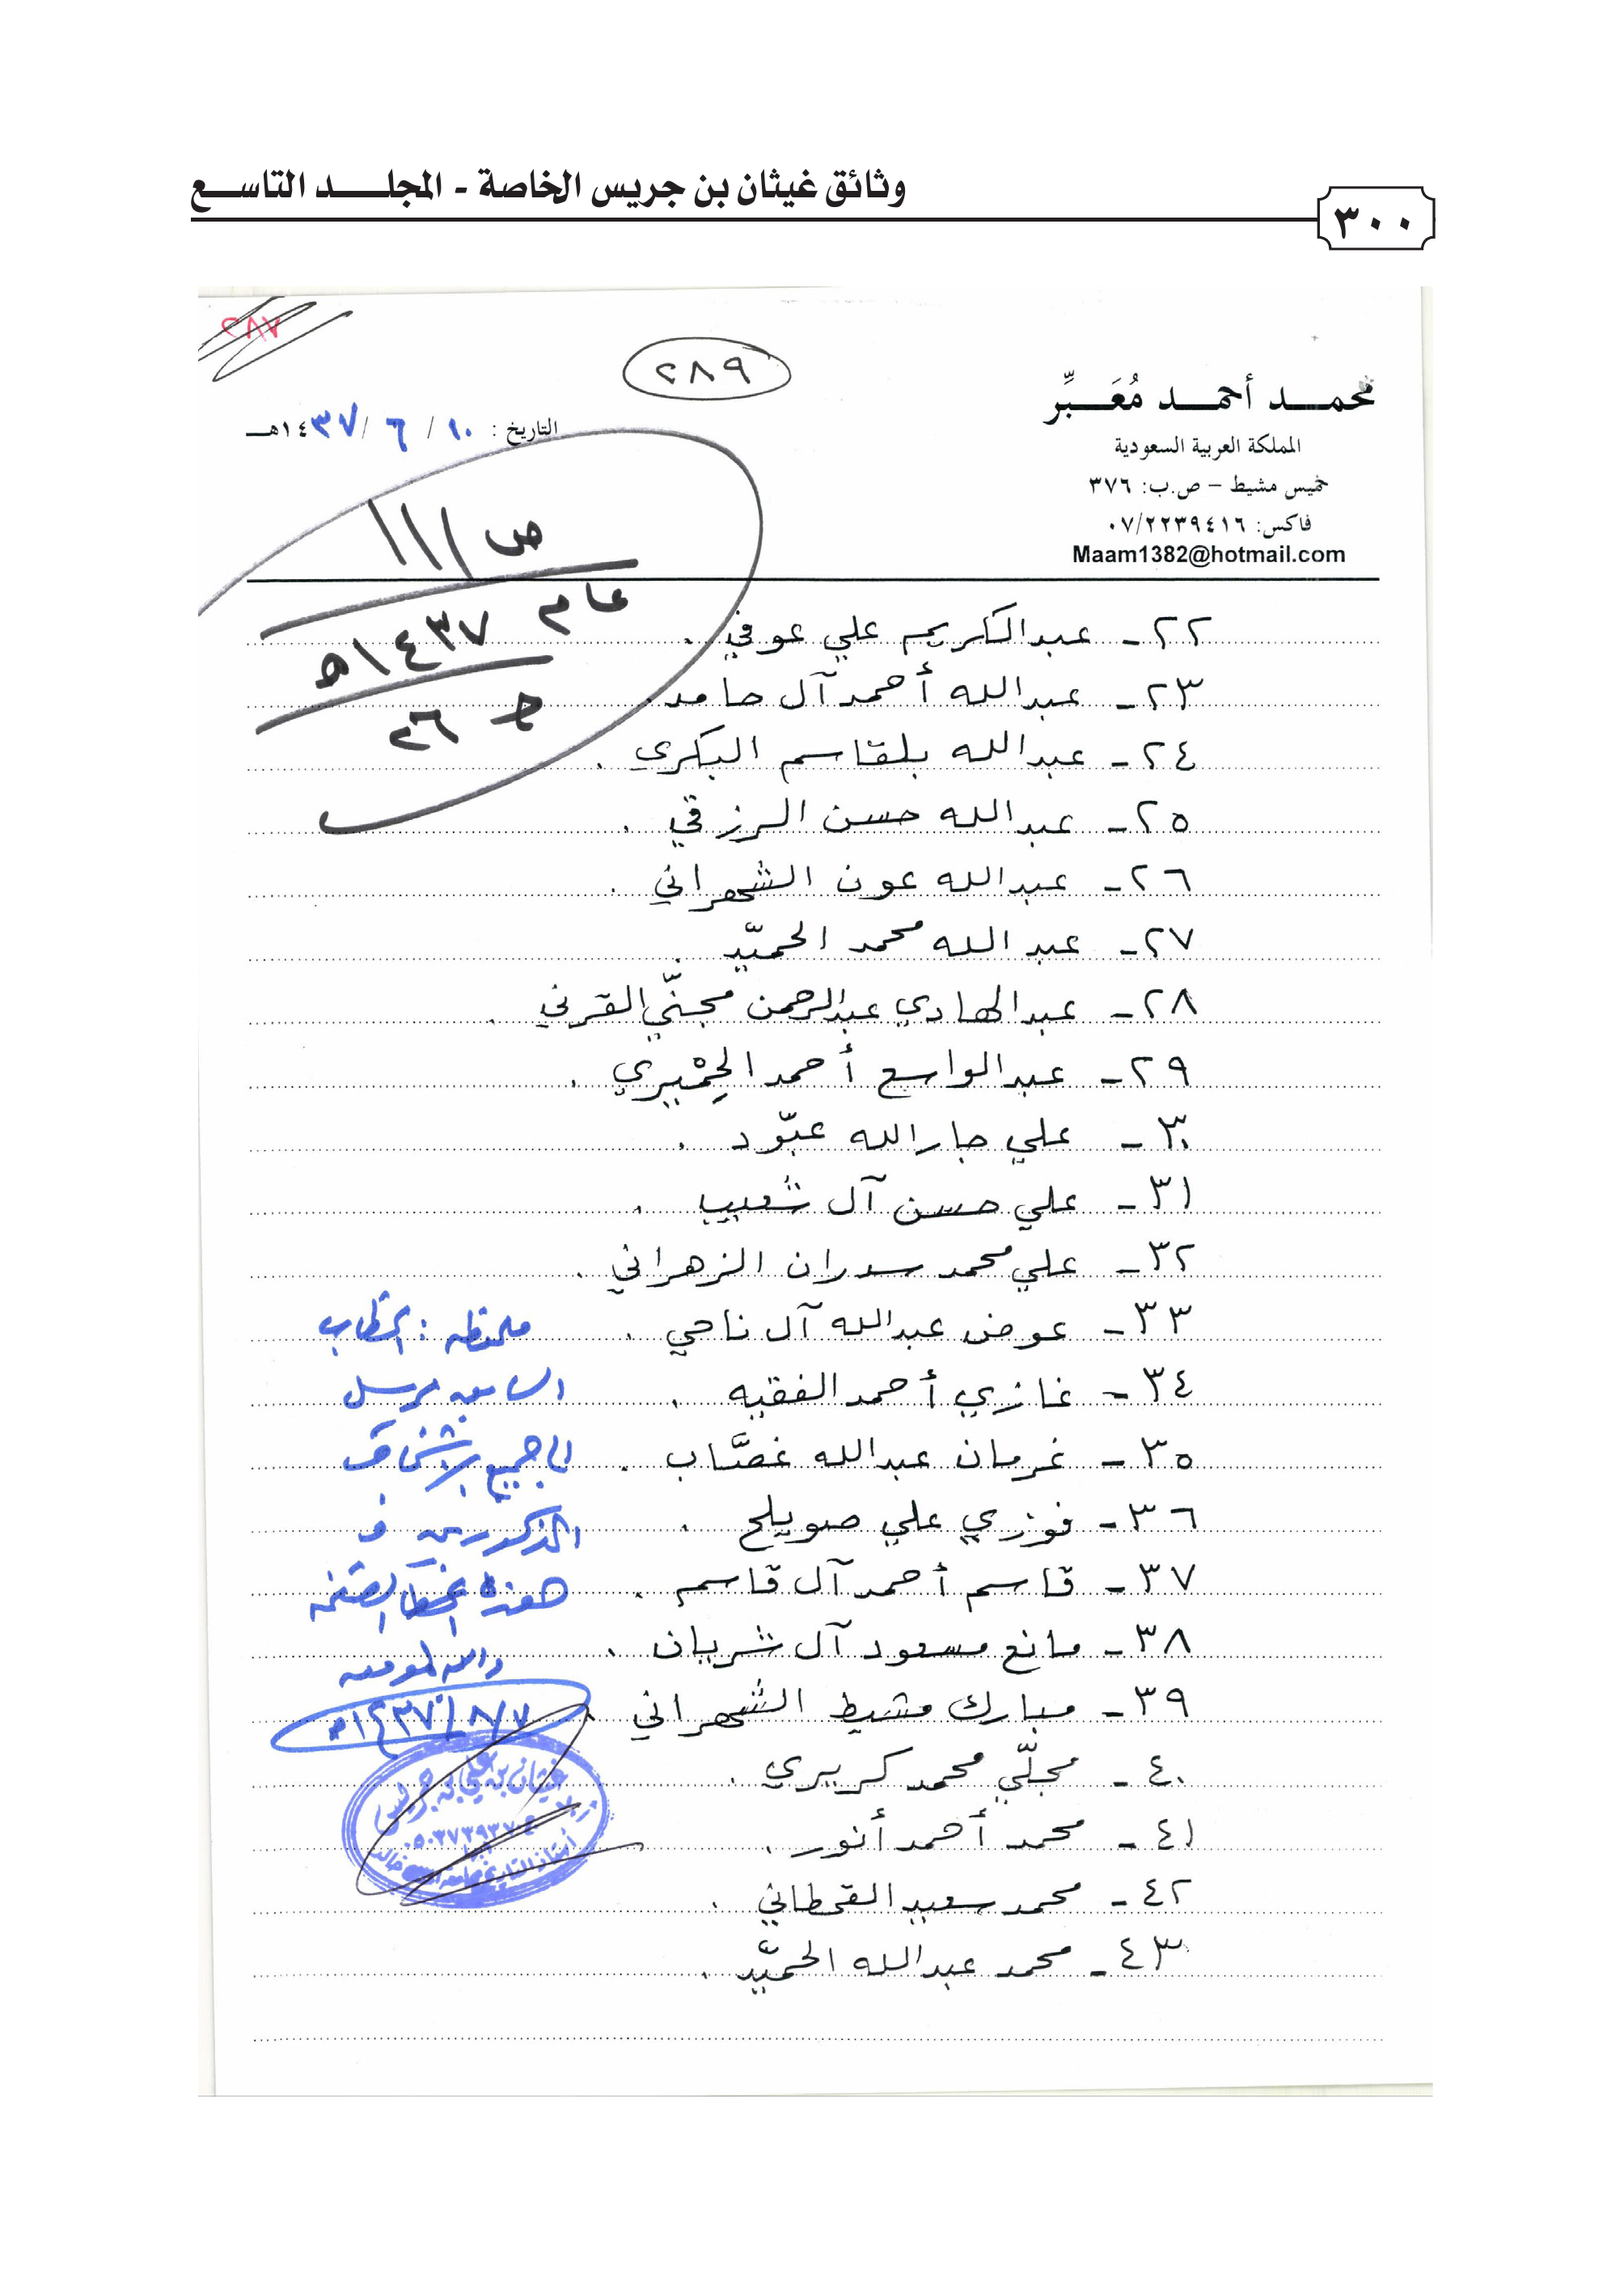 وثائق غيثان بن جريس الخاصة - المجلد التاسع
٣٠٠
٢٨٧
٢٨٩
محمد أحمد مُعَبِّر
المملكة العربية السعودية
خميس مشيط - ص.ب: ٣٧٦
فاكس: ٠٧/٢٢٣٩٤١٦
Maam1382@hotmail.com
التاريخ : ١٠ / ٦ / ١٤٣٧هـ
ص/١١
عام ١٤٣٧هـ
ج ٢٦
٢٢- عبدالكريم علي عوفي .
٢٣- عبدالله أحمد آل حامد .
٢٤- عبدالله بلقاسم البكري .
٢٥- عبدالله حسن الرزقي .
٢٦- عبدالله عون الشهراني .
٢٧- عبدالله محمد الحميّد .
٢٨- عبدالهادي عبدالرحمن مجنّي القرني .
٢٩- عبدالواسع أحمد الحِمْيري .
٣٠- علي جارالله عبّود .
٣١- علي حسن آل شعيب .
٣٢- علي محمد سدران الزهراني .
٣٣- عوض عبدالله آل ناحي .
٣٤- غازي أحمد الفقيه .
٣٥- غرمان عبدالله غصَّاب .
٣٦- فوزي علي صويلح .
٣٧- قاسم أحمد آل قاسم .
٣٨- مانع مسعود آل شريان .
٣٩- مبارك مشيط الشهراني .
٤٠- مجلّي محمد كريري .
٤١- محمد أحمد أنور .
٤٢- محمد سعيد القحطاني .
٤٣- محمد عبدالله الحميّد .
ملحوظة : الخطاب
السابق مرسل
إلى جميع الأشخاص
المذكورين في
هذه
والله الموفق
١٤٣٧/٨/٧هـ
غيثان بن علي بن جريس
أستاذ التاريخ بجامعة الملك خالد